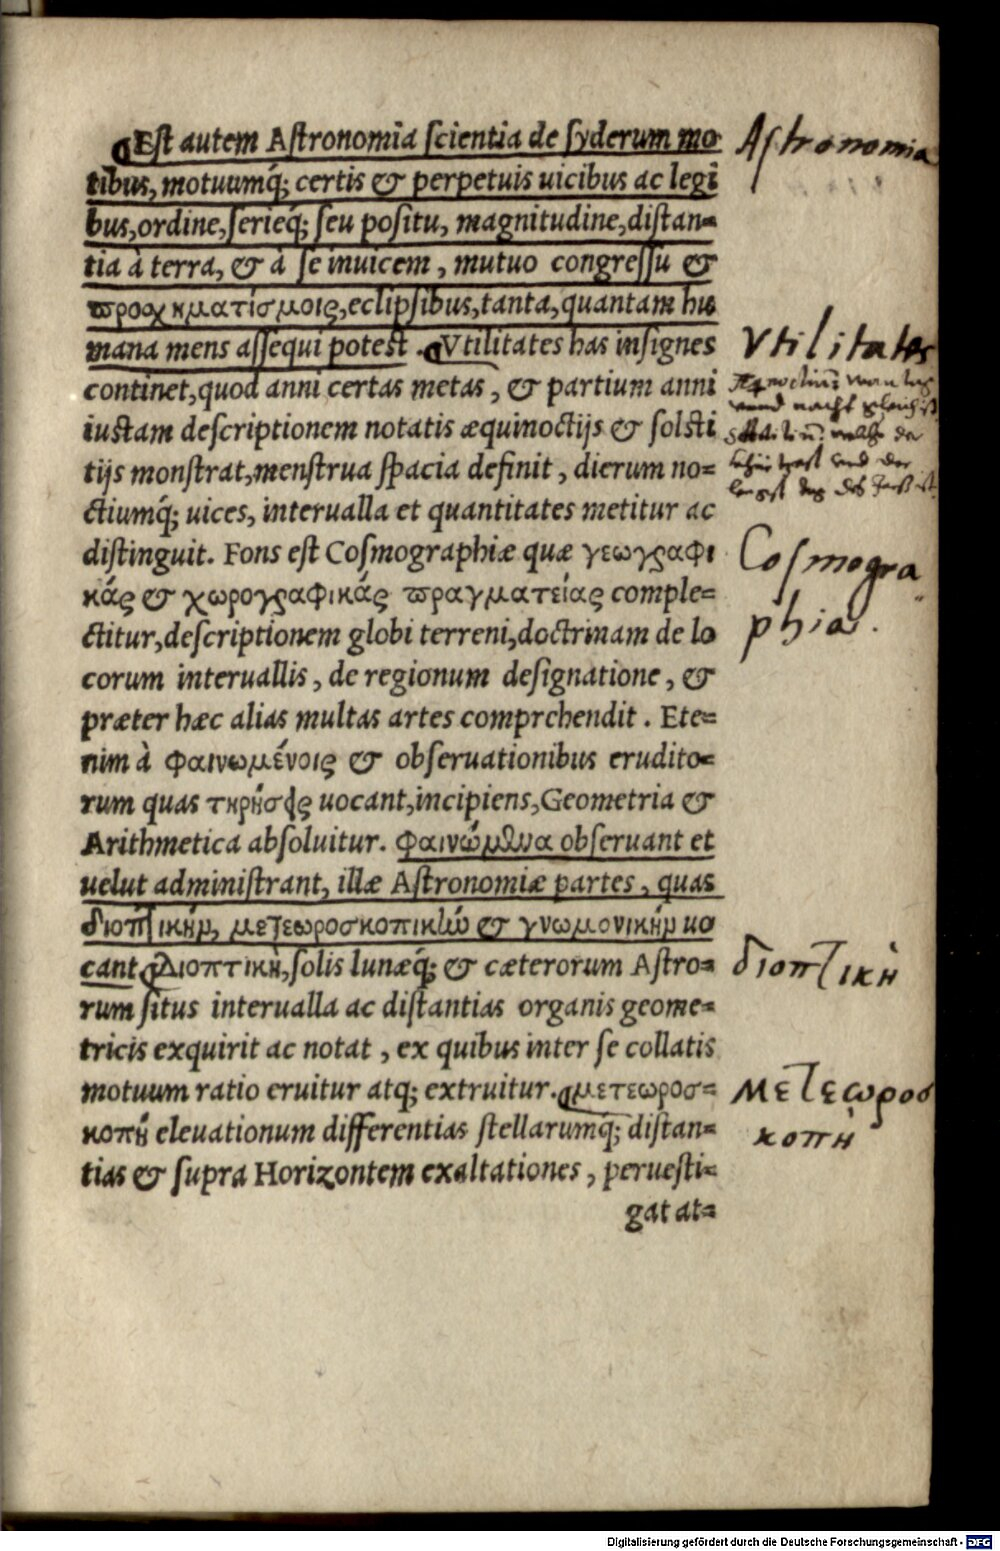 Est autem Astronomia scientia de syderum mo
tibus, motuumq́; certis & perpetuis uicibus ac legi
bus, ordine, serieq́; seu positu, magnitudine, distan=
tia à terra, & à se inuicem, mutuo congressu &
eclipsibus, tanta, quantam hu
mana mens assequi potest. Vtilitates has insignes
continet, quod anni certas metas, & partium anni
iustam descriptionem notatis æquinoctijs & solsti
tijs monstrat, menstrua spacia definit, dierum no=
ctiumq́; uices, interualla et quantitates metitur ac
distinguit. Fons est Cosmographiæ quæ γεωγραφι
κάς & χωρογραφικάς πραγματείας comple=
ctitur, descriptionem globi terreni, doctrinam de lo
corum interuallis, de regionum designatione, &
præter hæc alias multas artes comprehendit. Ete=
nim à φαινωμένοις & obseruationibus erudito=
rum quas τηρήσεις uocant, incipiens, Geometria &
Arithmetica absoluitur. φαινώμενα obseruant et
uelut administrant, illæ Astronomiæ partes, quas
διοπτικὴν, μετεωροσκοπικὴν & γνωμονικὴν uo
cant. Διοπτικὴ, solis lunæq́; & cæterorum Astro=
rum situs interualla ac distantias organis geome=
tricis exquirit ac notat, ex quibus inter se collatis
motuum ratio eruitur atq; extruitur. μετεωροσ=
κοπὴ eleuationum differentias stellarumq́; distan=
tias & supra Horizontem exaltationes, peruesti=
gat at=
Astronomia
Vtilitates
vnd nacht gleich ist
Cosmogra
phia.
διοπτικὴ
μετεωροσ
κοπὴ
Digitalisierung gefördert durch die Deutsche Forschungsgemeinschaft - DFG